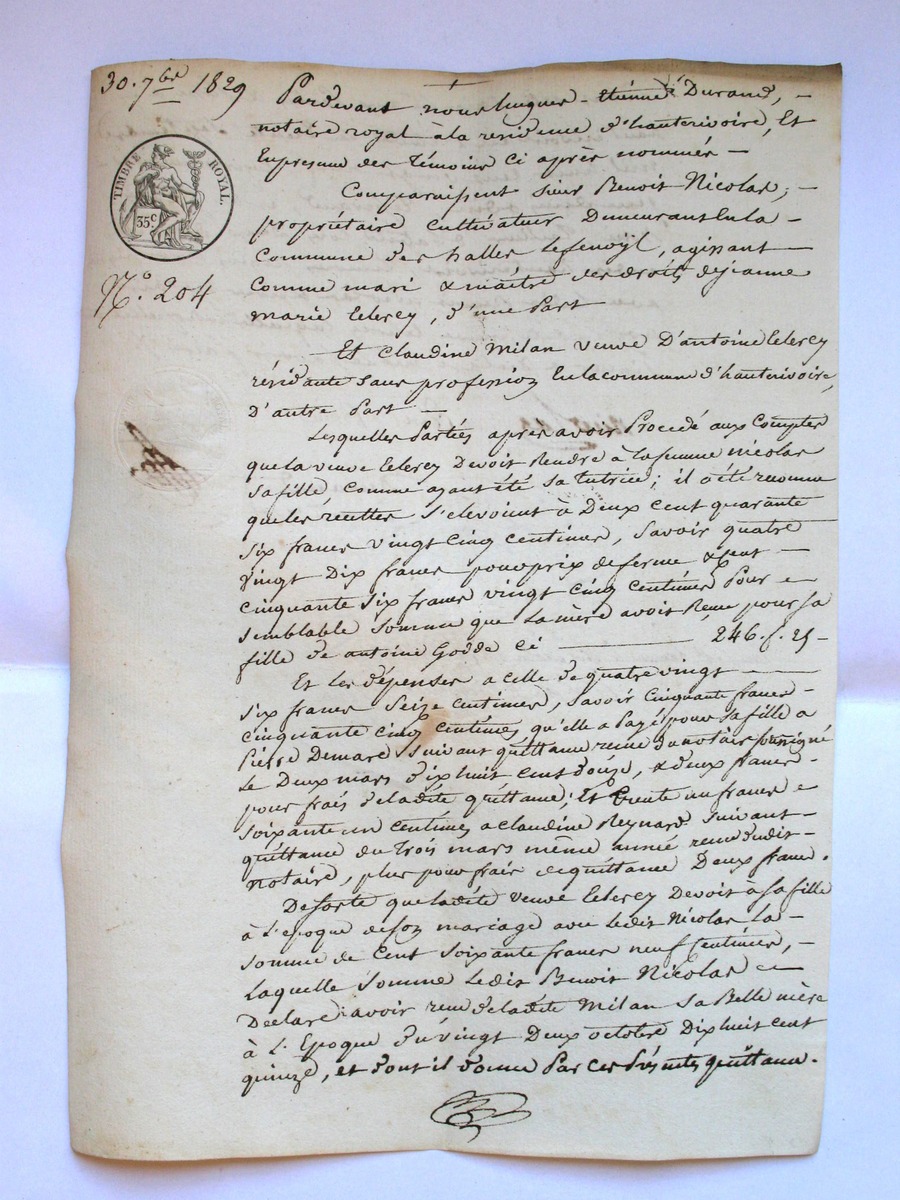 30. 7bre 1829
TIMBRE ROYAL.
35 c
N.o 204
Pardevant nous hugues - Etienne Durand, -
notaire royal à la residence d'hauterivoire, Et
En presence des temoins ci après nommés -
Comparaissent sieur Benoit Nicolas; -
propriétaire cultivateur Demeurant En la -
commune des halles le fenoÿl, agissant
comme mari & maître des droits de jeanne
marie Clercy, d'une Part
Et Claudine Milan veuve D'antoine Clercy
résidante sans profession En la commune d'hauterivoire,
D'autre Part -
Lesquelles Parties après avoir Procedé aux Comptes
que la veuve Clercy Devoit Rendre à la femme nicolas
sa fille, comme ayant été sa tutrice; il a été reconnu
que les recettes s'elevoient à Deux cent quarante
six francs vingt cinq centimes, savoir quatre
vingt Dix francs pour prix de ferme & Cent -
cinquante six francs vingt cinq centimes Pour
semblable somme que la mère avoit Reçue pour sa
fille de antoine Godde Ci 246. f. 25 -
Et les dépenses a celle de quatre vingt
six francs seize centimes, savoir cinquante francs -
cinquante cinq centimes qu'elle a Payé pour sa fille a
Pierre Demare suivant quittance reçue du notaire soussigné
Le Deux mars dix huit cent douze, & deux francs -
pour frais de la dite quittance; Et trente un francs
soixante un centimes a claudine Reynard suivant -
quittance du trois mars même année reçue dudit -
notaire, plus pour frais de quittance Deux francs.
De sorte que ladite veuve Clercy Devoit à sa fille
à L'epoque de son mariage avec ledit Nicolas la -
somme de Cent soixante francs neuf Centimes, -
Laquelle somme Ledit Benoit Nicolas
Declare avoir reçue de ladite Milan sa Belle mère
à L'Epoque du vingt Deux octobre Dix huit cent
quinze, et dont il donne Par ces Présentes quittance.